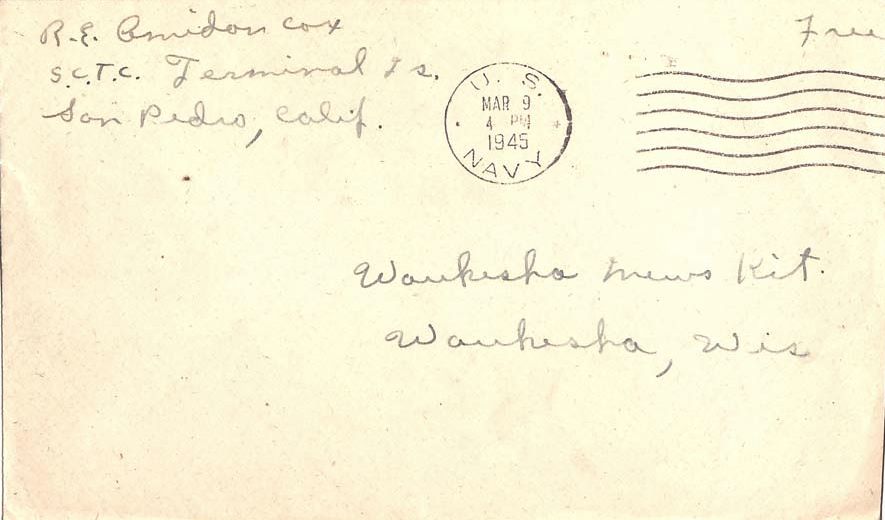 R.E. Amidon cox
S.C.T.C. Terminal Is.
San Pedro, Calif.
Free
U. S.
MAR 9
4 PM
1945
NAVY
Waukesha News Kit.
Waukesha, Wis